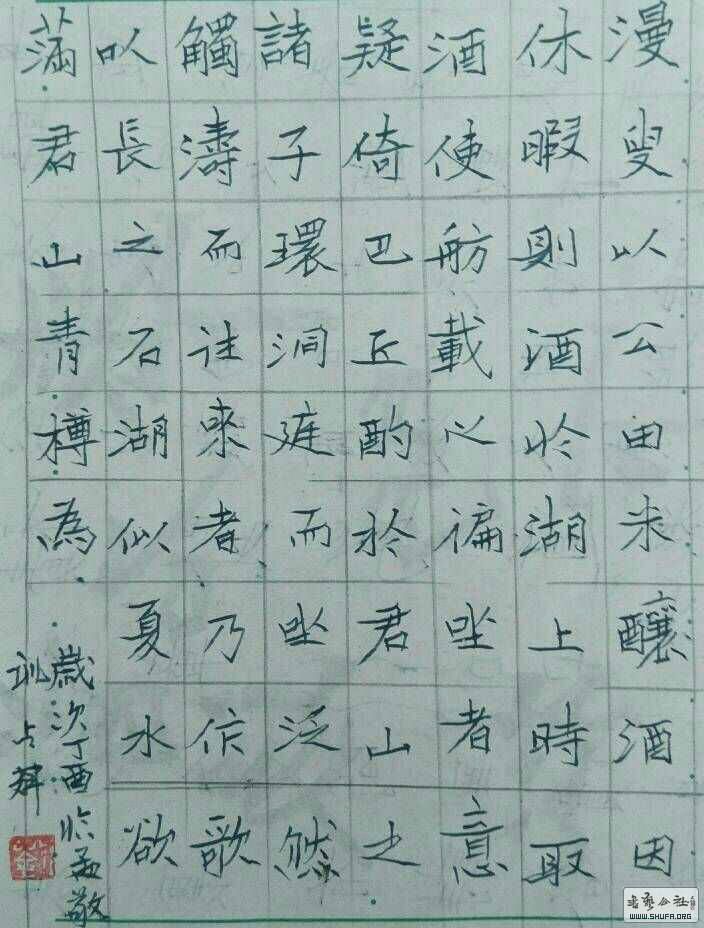 漫叟以公田米釀酒因
休暇則酒於湖上時取
酒使舫載之徧坐者意
疑倚巴丘酌於君山之
諸子環洞庭而坐泛然
觸濤而往來者乃作歌
以長之石湖似夏水欲
滿君山青樽為
歲次丁酉臨孟敬
訓占辉
书艺公社
WWW.SHUFA.ORG